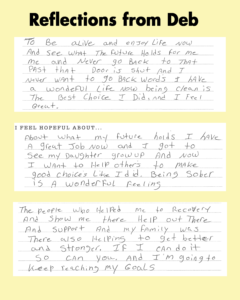 Reflections from Deb
To Be alive and enjoy Life now
And see what the future Holds for me
me and Never go Back to that
Past that Door is Shut And I
never want to go Back words I have
a wonderful Life now being clean is
The Best Choice I Did, and I Feel
Great.
I FEEL HOPEFUL ABOUT...
About what my future holds I have
A Great Job Now and I got to
see my Daughter grow up And Now
I want to Help others to make
good choices Like I did. Being Sober
is A wonderful Feeling
The people who Helped me to Recovery
And Show me there Help out There
And Support And my Family was
There also Helping to get better
and Stronger. IF I can do it
So can you. and I'm going to
keep reaching my Goals